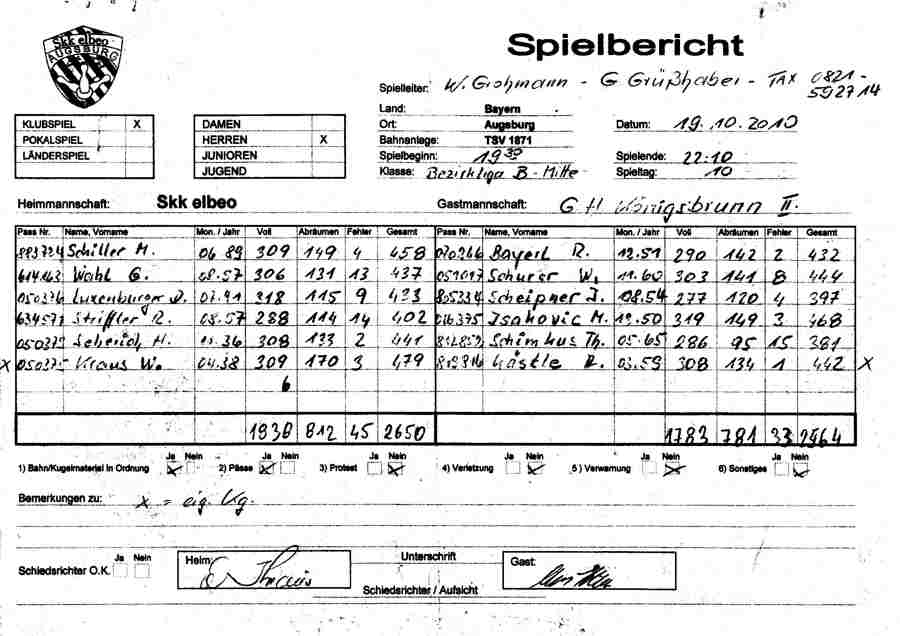 Skk elbeo
AUGSBURG
Spielbericht
Spielleiter: W. Grohmann - G. Grüßhaber - FAX 0821-
592714
Land: Bayern
Ort: Augsburg Datum: 19.10.2010
Bahnanlage: TSV 1871
Spielbeginn: 19 30 Spielende: 22:10
Klasse: Bezirkliga B - Mitte Spieltag: 10
KLUBSPIEL X
POKALSPIEL
LÄNDERSPIEL
DAMEN
HERREN X
JUNIOREN
JUGEND
Heimmannschaft: Skk elbeo Gastmannschaft: GH Königsbrunn II.
Pass Nr. Name, Vorname Mon. / Jahr Voll Abräumen Fehler Gesamt Pass Nr. Name, Vorname Mon. / Jahr Voll Abräumen Fehler Gesamt
Schiller M. 06 89 309 149 4 458 Bayerl R. 12.51 290 142 2 432
Wahl G. 08.57 306 131 13 437 Schurer W. 11.60 303 141 8 444
Luxenburger 318 115 9 433 Scheipner J. 08.54 277 120 4 397
Striffler R. 08.57 288 114 14 402 Isakovic M. 12.50 319 149 3 468
05.36 308 133 2 441 Schimkus Th. 05.65 286 95 15 381
X Kraus W. 04.38 309 170 3 479 Kästle 03.59 308 134 1 442 X
6
1838 812 45 2650 1783 781 33 2564
Ja Nein Ja Nein Ja Nein Ja Nein Ja Nein Ja Nein
1) Bahn/Kugelmaterial in Ordnung 2) Pässe 3) Protest 4) Verletzung 5) Verwarnung 6) Sonstiges
Bemerkungen zu: X = eig. Kg.
Ja Nein
Schiedsrichter O.K. Heim: Unterschrift Gast:
Schiedsrichter / Aufsicht